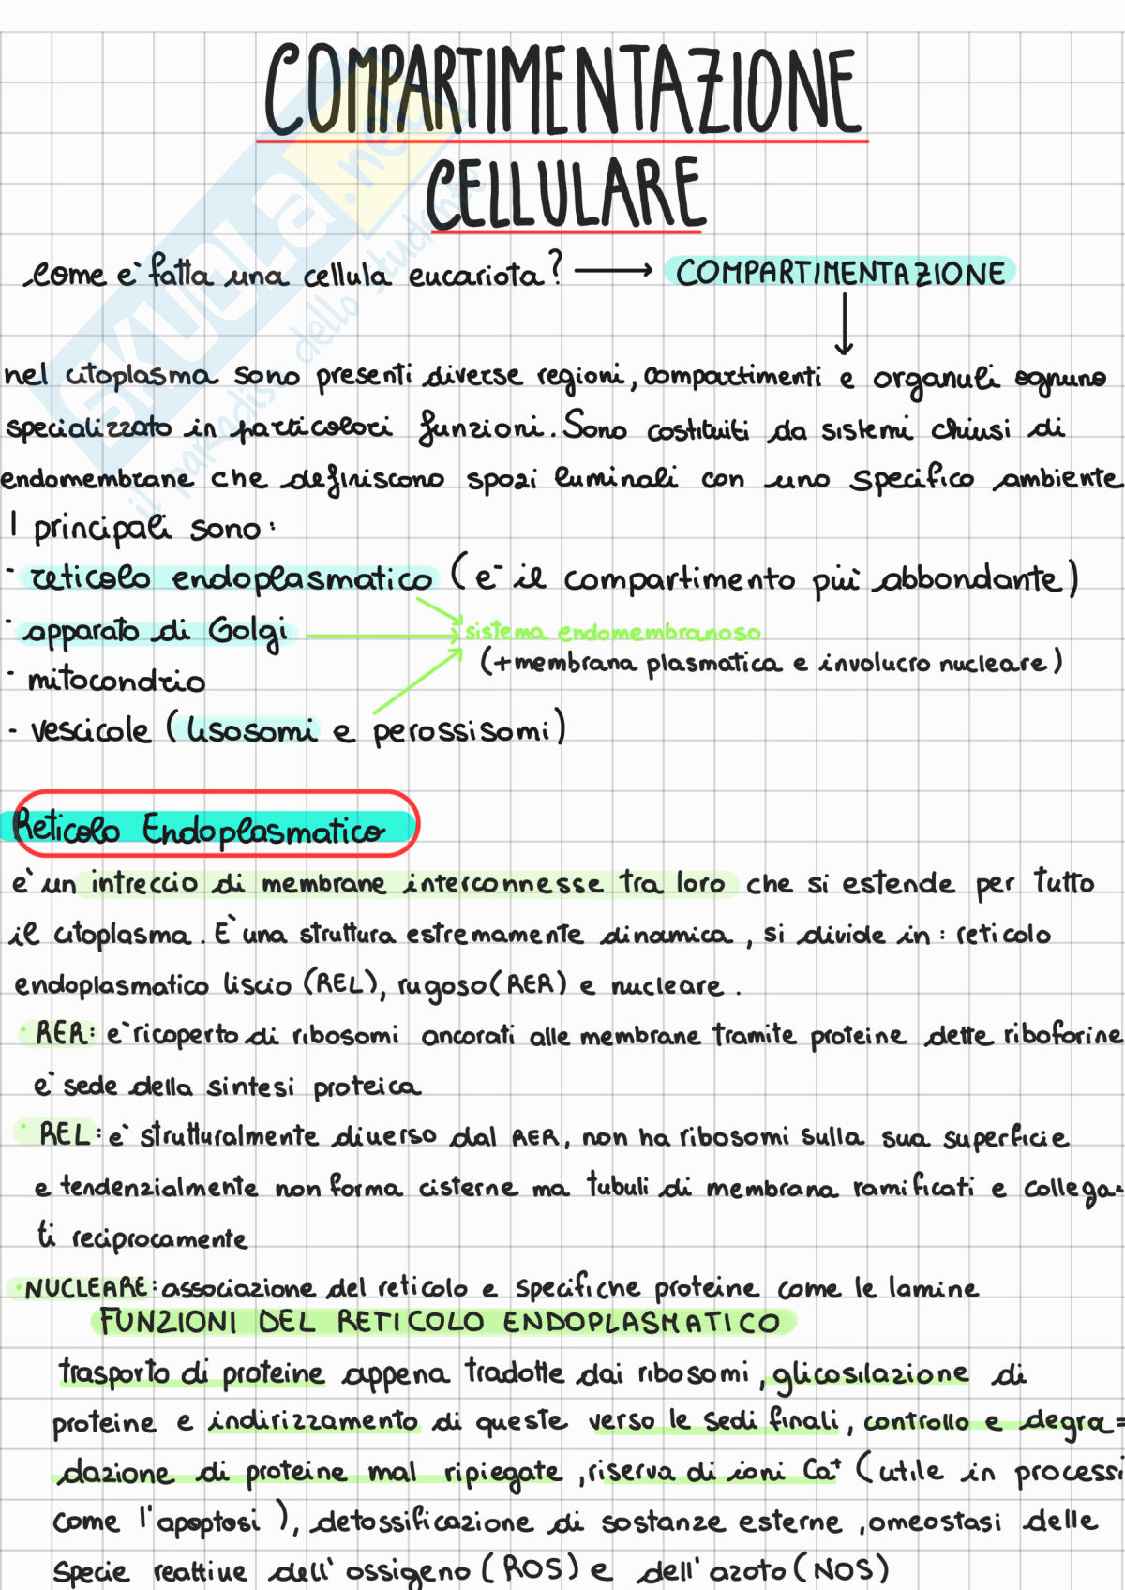 COMPARTIMENTAZIONE
CELLULARE
come e' fatta una cellula eucariota? → COMPARTIMENTAZIONE
nel citoplasma sono presenti diverse regioni, compartimenti e organuli ognuno
specializzato in particolari funzioni. Sono costituiti da sistemi chiusi di
endomembrane che definiscono spazi luminali con uno specifico ambiente
I principali sono:
- reticolo endoplasmatico (e' il compartimento più abbondante)
- apparato di Golgi
sistema endomembranoso
(+membrana plasmatica e involucro nucleare)
- mitocondrio
- vescicole (lisosomi e perossisomi)
Reticolo Endoplasmatico
e' un intreccio di membrane interconnesse tra loro che si estende per tutto
il citoplasma. E' una struttura estremamente dinamica, si divide in: reticolo
endoplasmatico liscio (REL), rugoso (RER) e nucleare.
· RER: e' ricoperto di ribosomi ancorati alle membrane tramite proteine dette riboforine
e' sede della sintesi proteica
· REL: e' strutturalmente diverso dal RER, non ha ribosomi sulla sua superficie
e tendenzialmente non forma cisterne ma tubuli di membrana ramificati e collega-
ti reciprocamente
· NUCLEARE: associazione del reticolo e specifiche proteine come le lamine
FUNZIONI DEL RETICOLO ENDOPLASMATICO
trasporto di proteine appena tradotte dai ribosomi, glicosilazione di
proteine e indirizzamento di queste verso le sedi finali, controllo e degra=
dazione di proteine mal ripiegate, riserva di ioni Ca⁺ (utile in processi
come l'apoptosi), detossificazione di sostanze esterne, omeostasi delle
specie reattive dell'ossigeno (ROS) e dell'azoto (NOS)
SKUOLA.net
il paradiso dello studente